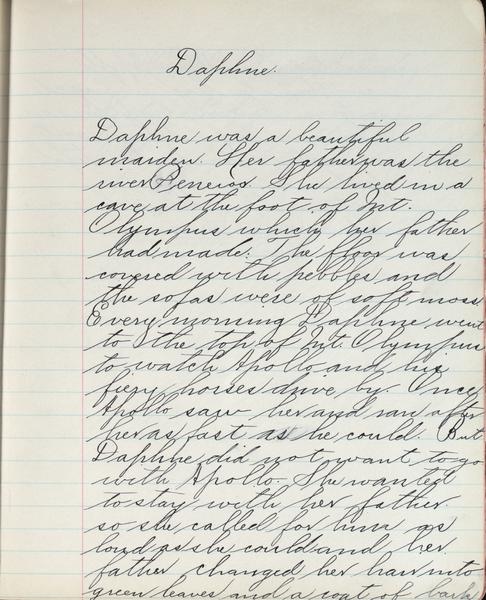 Daphne.
Daphne was a beautiful
maiden. Her father was the
river Peneios. She lived in a
cave at the foot of Mt.
Olympus which her father
had made. The floor was
covered with pebbles and
the sofas were of soft moss.
Every morning Daphne went
to the top of Mt. Olympus
to watch Apollo and his
fiery horses drive by. Once
Apollo saw her and ran after
her as fast as he could. But
Daphne did not want to go
with Apollo. She wanted
to stay with her father
so she called for him as
loud as she could and her
father changed her hair into
green leaves and a coat of bark